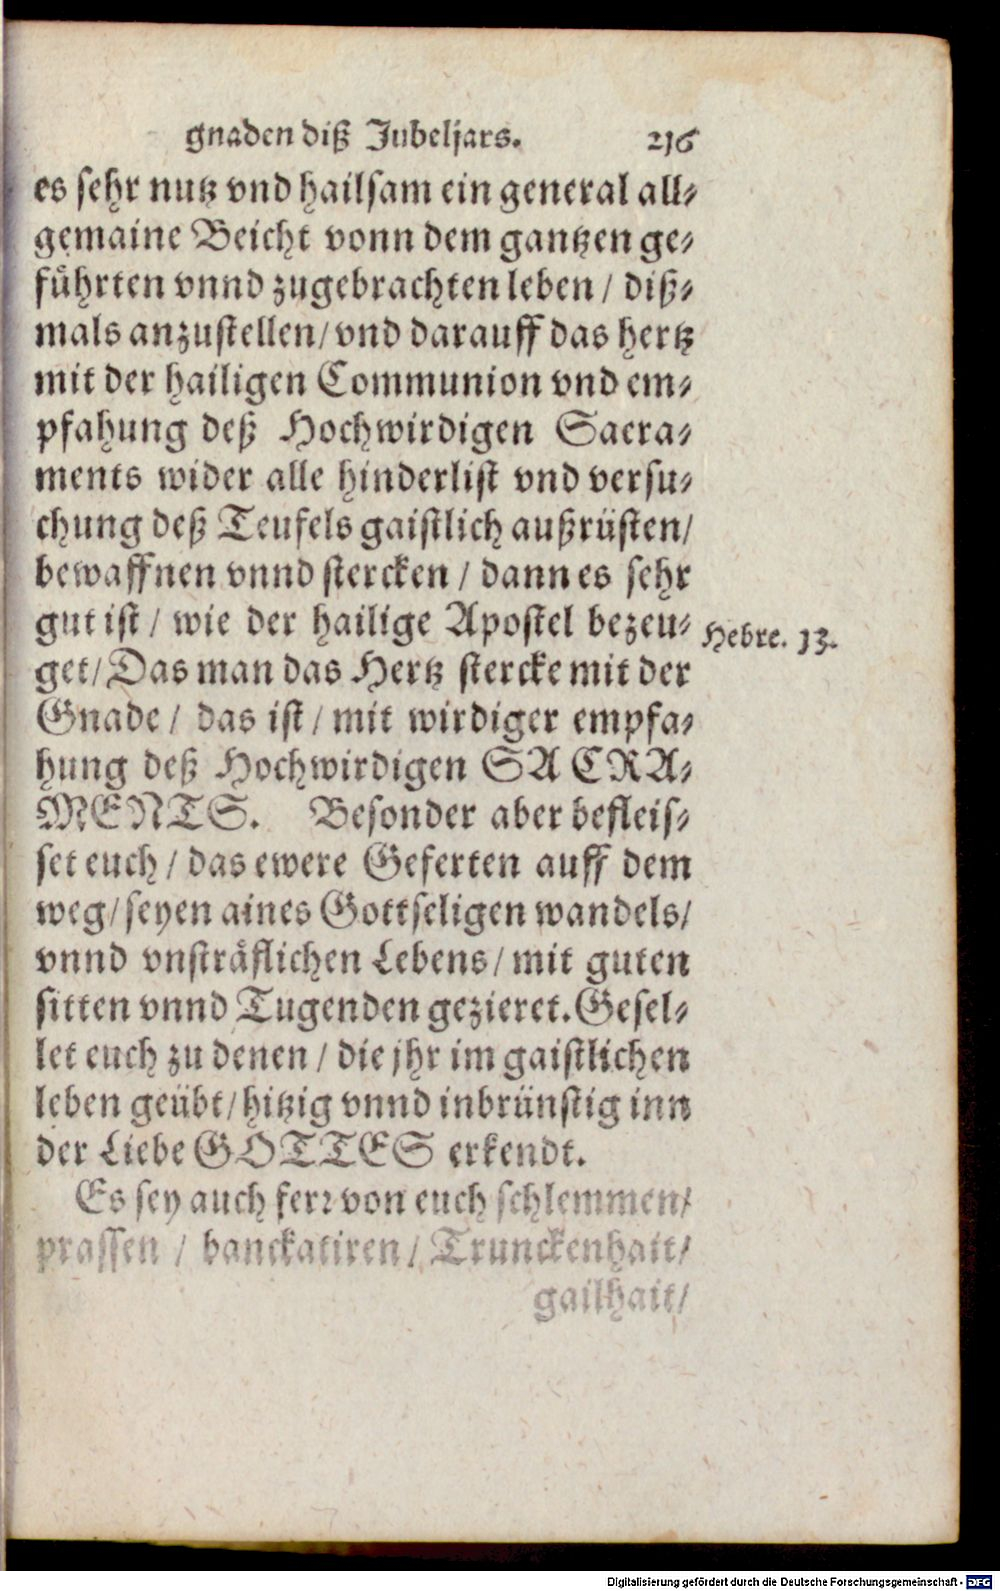 gnaden diß Jubeljars. 216
es sehr nutz vnd hailsam ein general all⸗
gemaine Beicht vonn dem gantzen ge⸗
fuͤhrten vnnd zugebrachten leben / diß⸗
mals anzustellen/ vnd darauff das hertz
mit der hailigen Communion vnd em⸗
pfahung deß Hochwirdigen Sacra⸗
ments wider alle hinderlist vnd versu⸗
chung deß Teufels gaistlich außrüsten/
bewaffnen vnnd stercken / dann es sehr
gut ist / wie der hailige Apostel bezeu⸗
Hebre. 13.
get/ Das man das Hertz stercke mit der
Gnade / das ist / mit wirdiger empfa⸗
hung deß Hochwirdigen SACRA⸗
MENTS. Besonder aber befleis⸗
set euch / das ewere Geferten auff dem
weg/ seyen aines Gottseligen wandels/
vnnd vnstraͤflichen Lebens/ mit guten
sitten vnnd Tugenden gezieret. Gesel⸗
let euch zu denen / die jhr im gaistlichen
leben geübt/ hitzig vnnd inbrünstig inn
der Liebe GOTTES erkendt.
Es sey auch ferꝛ von euch schlemmen/
prassen / banckatiren / Trunckenhait/
gailhait/
Digitalisierung gefördert durch die Deutsche Forschungsgemeinschaft - DFG